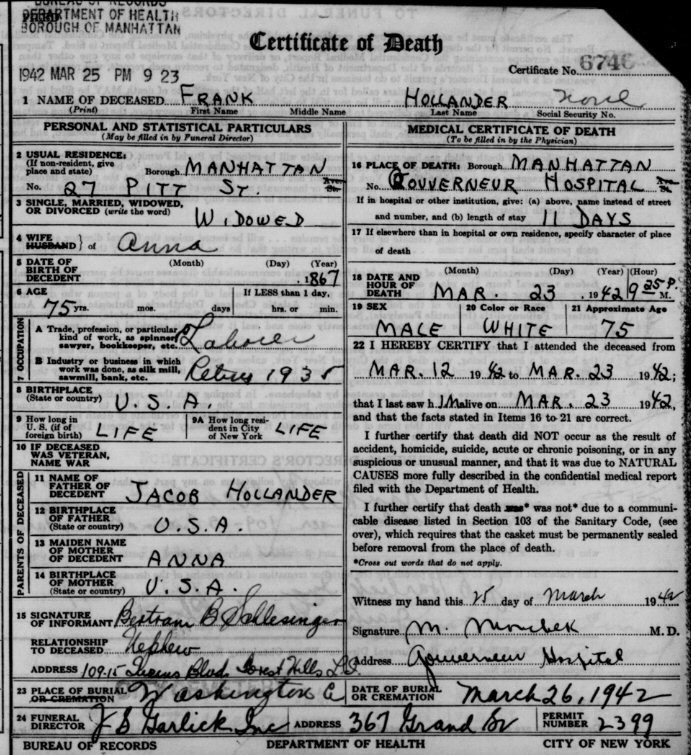 BUREAU OF RECORDS
DEPARTMENT OF HEALTH
BOROUGH OF MANHATTAN
Certificate of Death
1942 MAR 25 PM 9 23
Certificate No. 6746
1 NAME OF DECEASED FRANK HOLLANDER none
(Print) First Name Middle Name Last Name Social Security No.
PERSONAL AND STATISTICAL PARTICULARS
(May be filled in by Funeral Director)
2 USUAL RESIDENCE:
(If non-resident, give place and state) Borough MANHATTAN
No. 27 PITT ST.
3 SINGLE, MARRIED, WIDOWED,
OR DIVORCED (write the word) WIDOWED
4 WIFE
HUSBAND } of Anna
5 DATE OF BIRTH OF DECEDENT (Month) (Day) (Year)
, 1867
6 AGE If LESS than 1 day,
75 yrs. mos. days hrs. or min.
7 OCCUPATION
A Trade, profession, or particular
kind of work, as spinner,
sawyer, bookkeeper, etc. Laborer
B Industry or business in which
work was done, as silk mill,
sawmill, bank, etc.
8 BIRTHPLACE
(State or country) U.S.A.
9 How long in
U. S. (if of
foreign birth) LIFE
9A How long resi-
dent in City
of New York LIFE
10 IF DECEASED
WAS VETERAN,
NAME WAR
PARENTS OF DECEASED
11 NAME OF
FATHER OF
DECEDENT JACOB HOLLANDER
12 BIRTHPLACE
OF FATHER
(State or country) U.S.A.
13 MAIDEN NAME
OF MOTHER
OF DECEDENT ANNA
14 BIRTHPLACE
OF MOTHER
(State or country) U.S.A.
15 SIGNATURE
OF INFORMANT Bertram B Schlesinger
RELATIONSHIP
TO DECEASED Nephew
ADDRESS 109-15 Queens Blvd. Forest Hills L.I.
MEDICAL CERTIFICATE OF DEATH
(To be filled in by the Physician)
16 PLACE OF DEATH: Borough MANHATTAN
No. GOUVERNEUR HOSPITAL
If in hospital or other institution, give: (a) above, name instead of street
and number, and (b) length of stay 11 DAYS
17 If elsewhere than in hospital or own residence, specify character of place
of death
18 DATE AND
HOUR OF
DEATH (Month) (Day) (Year) (Hour)
MAR. 23, 1942 9 25 P. M.
19 SEX 20 Color or Race 21 Approximate Age
MALE WHITE 75
22 I HEREBY CERTIFY that I attended the deceased from
MAR. 12 1942 to MAR. 23 1942;
that I last saw h IM alive on MAR. 23 1942,
and that the facts stated in Items 16 to 21 are correct.
I further certify that death did NOT occur as the result of
accident, homicide, suicide, acute or chronic poisoning, or in any
suspicious or unusual manner, and that it was due to NATURAL
CAUSES more fully described in the confidential medical report
filed with the Department of Health.
I further certify that death was* was not* due to a communi-
cable disease listed in Section 103 of the Sanitary Code, (see
over), which requires that the casket must be permanently sealed
before removal from the place of death.
*Cross out words that do not apply.
Witness my hand this 25 day of March 1942
Signature M. M. D.
Address Gouverneur Hospital
23 PLACE OF BURIAL
OR CREMATION Washington C
DATE OF BURIAL
OR CREMATION March 26, 1942
24 FUNERAL
DIRECTOR J B Garlick Inc ADDRESS 367 Grand St PERMIT
NUMBER 2399
BUREAU OF RECORDS DEPARTMENT OF HEALTH CITY OF NEW YORK